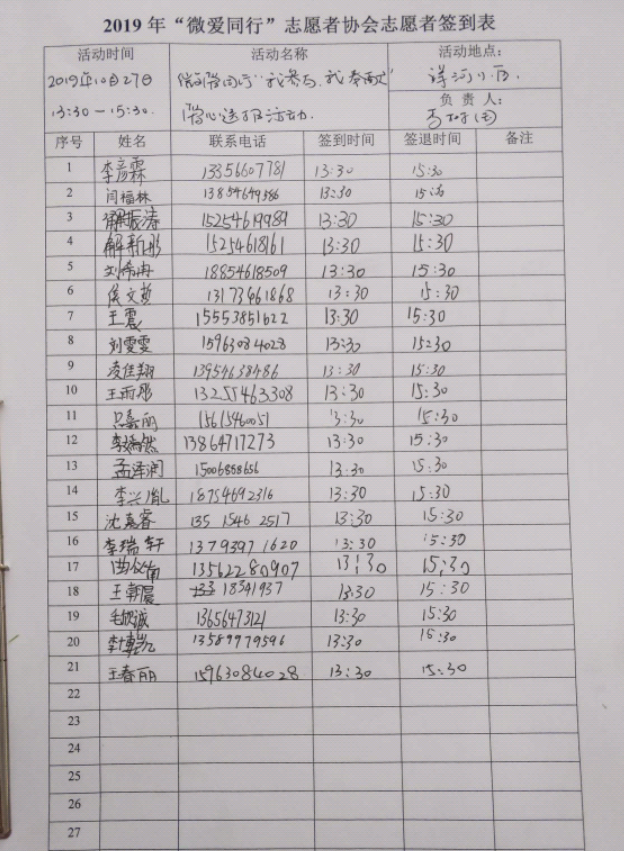 2019 年“微爱同行”志愿者协会志愿者签到表
活动时间 活动名称 活动地点:
2019年10月27日 微爱同行"我参与、我奉献"
13:30-15:30. 活动.
负责人:
序号 姓名 联系电话 签到时间 签退时间 备注
1 李彦霖 13356607781 13:30 15:30
2 闫福林 13854649586 13:30 15:30
3 解振涛 15254619989 13:30 15:30
4 解新彤 15254618161 13:30 15:30
5 刘希冉 18854618509 13:30 15:30
6 侯文哲 13173461868 13:30 15:30
7 王震 15553851622 13:30 15:30
8 刘雯雯 15963084028 13:30 15:30
9 凌佳翔 13954638486 13:30 15:30
10 王雨彤 13255463308 13:30 15:30
11 吕嘉丽 15615460051 13:30 15:30
12 李嫣然 13864717273 13:30 15:30
13 孟泽润 15006858656 13:30 15:30
14 李兴胤 18754692316 13:30 15:30
15 沈嘉睿 135 1546 2517 13:30 15:30
16 李瑞轩 1379397 1620 13:30 15:30
17 13562280907 13:30 15:30
18 王朝晨 133 18341937 13:30 15:30
19 毛欣诚 13656473121 13:30 15:30
20 李博凯 13589979596 13:30 15:30
21 王春丽 15963084028 13:30 15:30
22
23
24
25
26
27